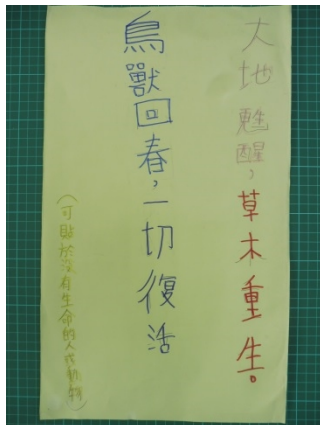 大地甦醒，草木重生。
鳥獸回春，一切復活
（可貼於沒有生命的人或動物）